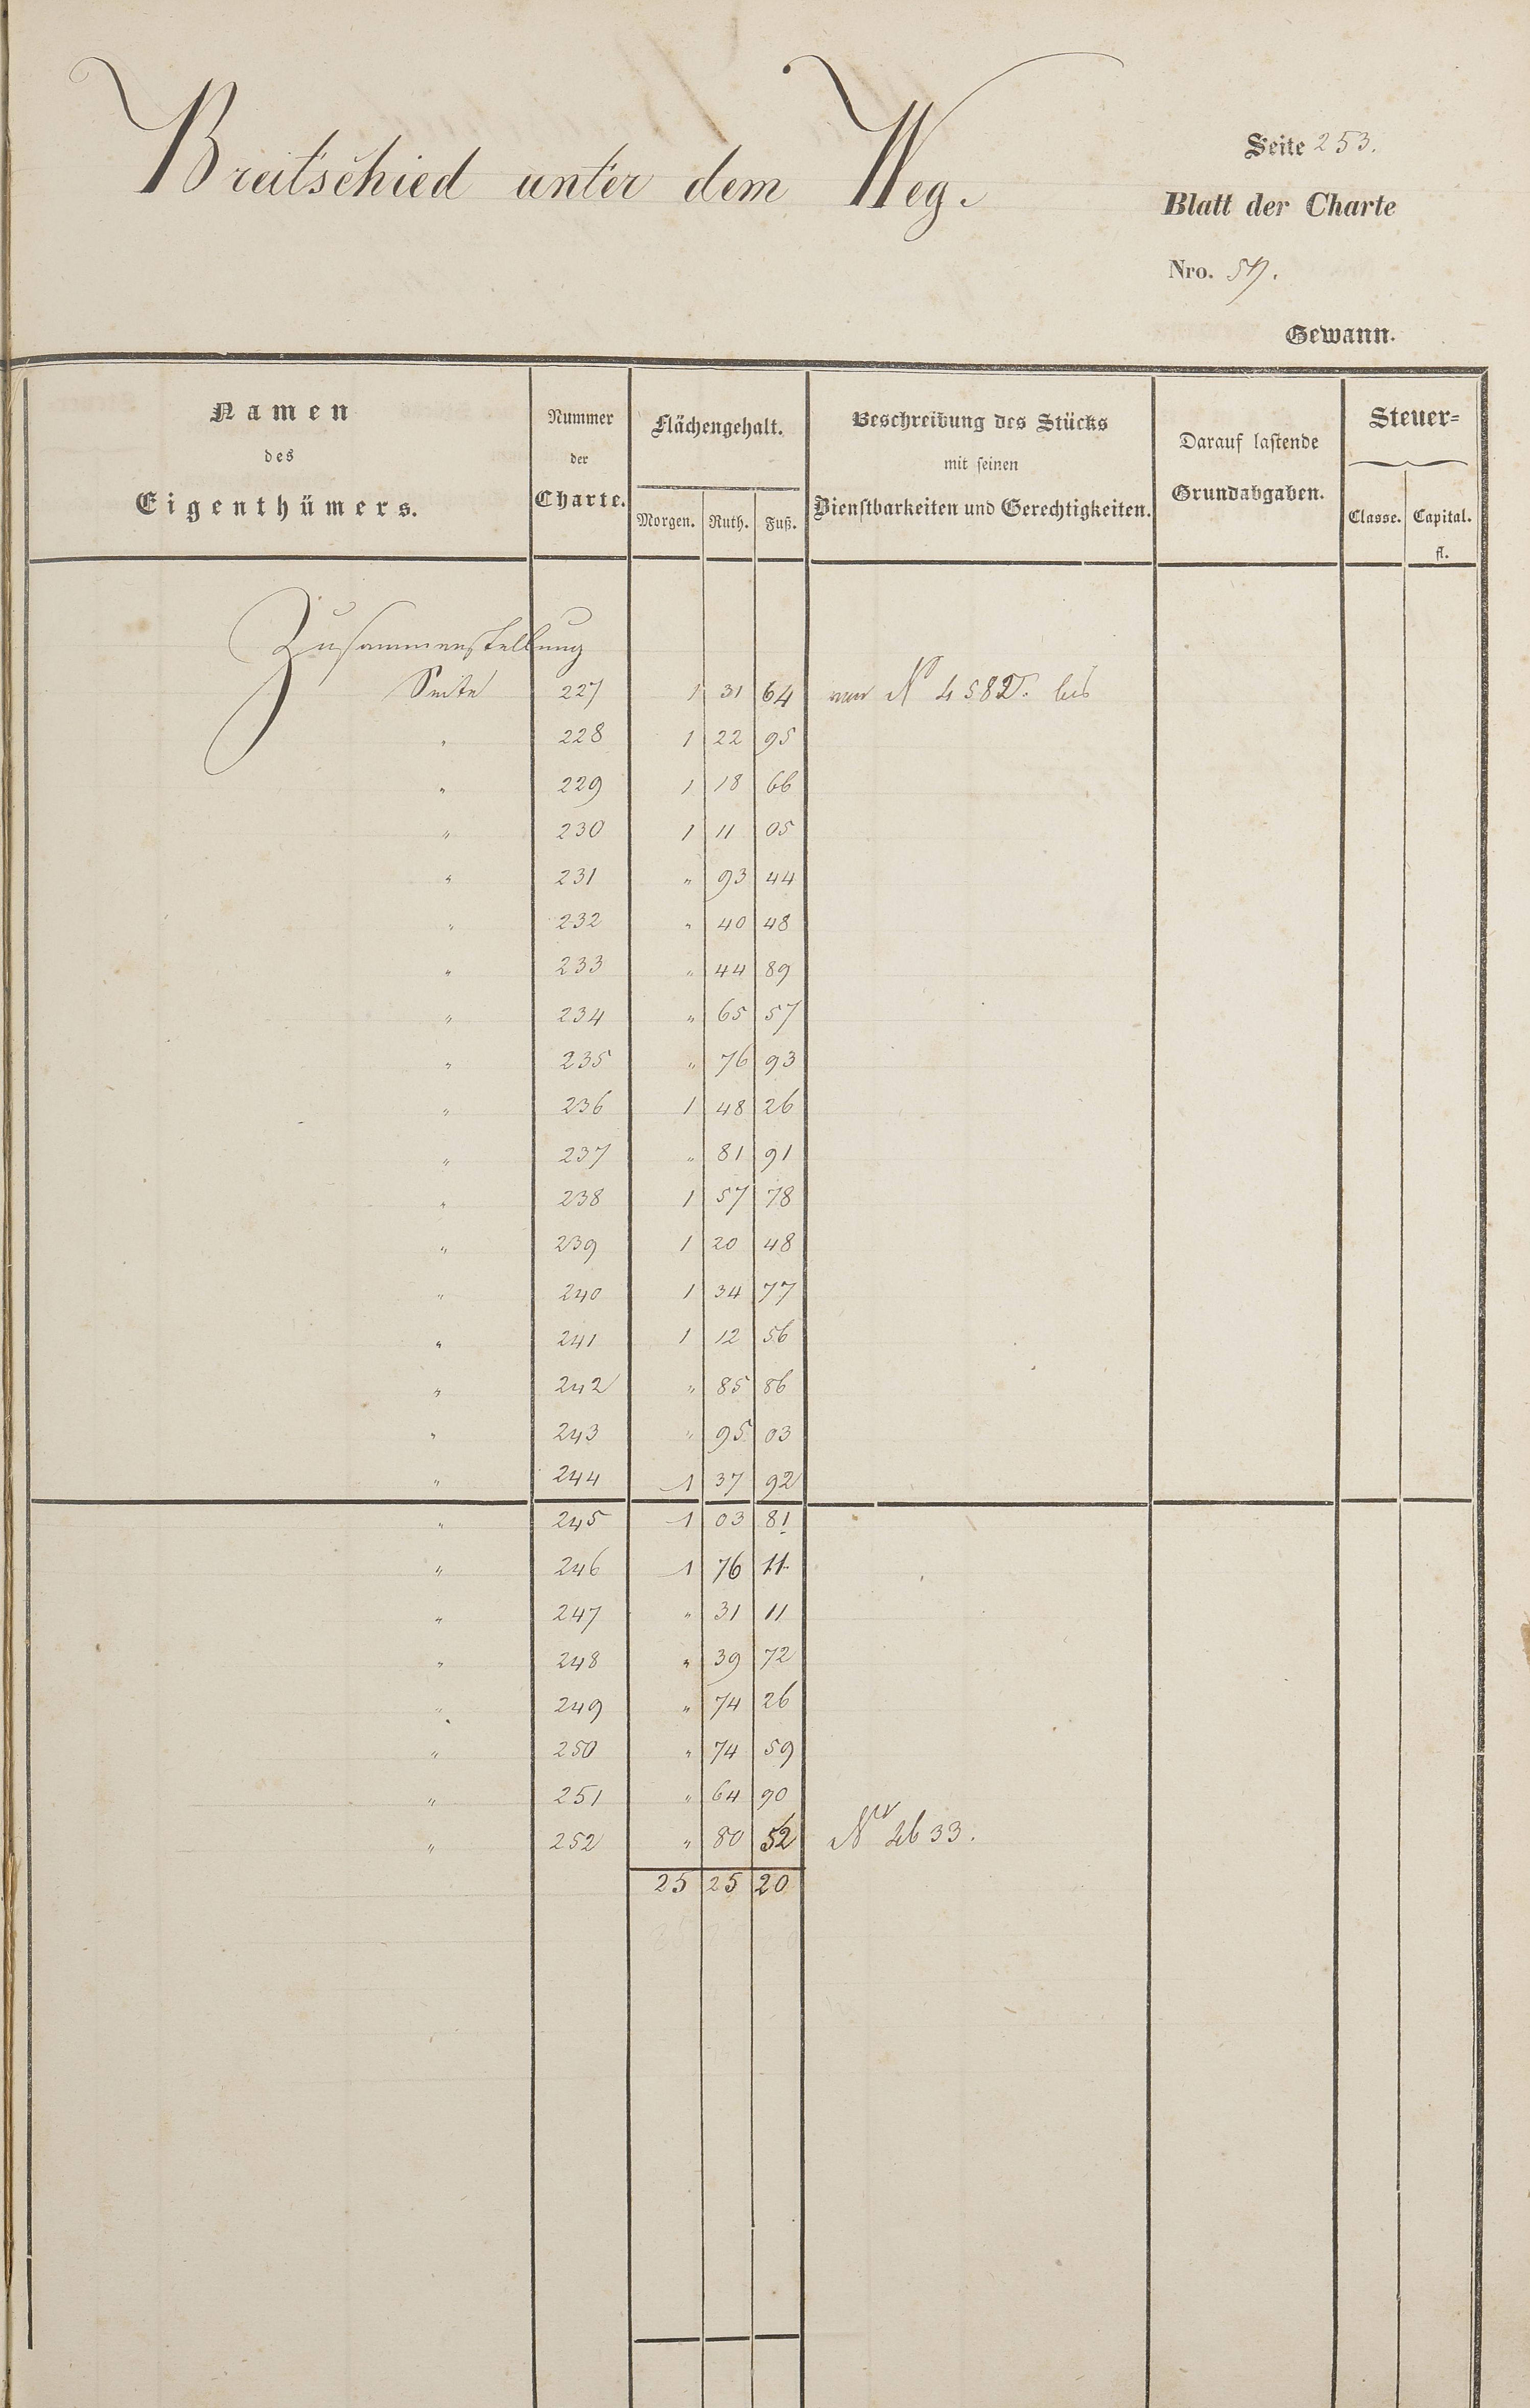 Breitschied unter dem Weg.
Seite 253.
Blatt der Charte
Nro. 57.
Gewann.
Namen des Eigenthümers.
Nummer der Charte.
Flächengehalt.
Morgen. Ruth. Fuß.
Beschreibung des Stücks mit seinen Dienstbarkeiten und Gerechtigkeiten.
Darauf lastende Grundabgaben.
Steuer=
Classe. Capital. fl.
Zusammenstellung
Seite 227 1 31 64 von N 4582. bis
" 228 1 22 95
" 229 1 18 66
" 230 1 11 05
" 231 " 93 44
" 232 " 40 48
" 233 " 44 89
" 234 " 65 57
" 235 " 76 93
" 236 1 48 26
" 237 " 81 91
" 238 1 57 78
" 239 1 20 48
" 240 1 34 77
" 241 1 12 56
" 242 " 85 86
" 243 " 95 03
" 244 1 37 92
" 245 1 03 81
" 246 1 76 11
" 247 " 31 11
" 248 " 39 72
" 249 " 74 26
" 250 " 74 59
" 251 " 64 90
" 252 " 80 52 Nr 4633.
25 25 20